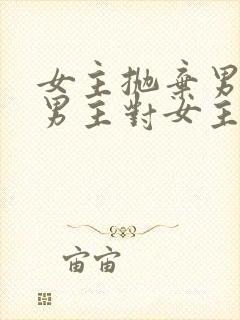 女主抛棄男
男主對女主
宙宙